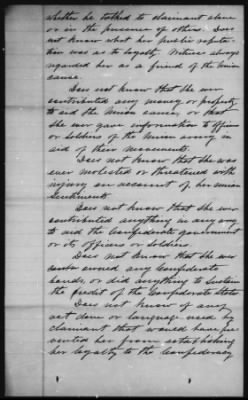 whether he talked to claimant alone
or in the presence of others. Does
not know what her public reputa-
tion was as to loyalty. Witness always
regarded her as a friend of the Union
cause.
Does not know that she ever
contributed any money or property
to aid the Union cause, or that
she ever gave information to officers
or soldiers of the Union army in
aid of their movements.
Does not know that she was
ever molested or threatened with
injury on account of her Union
Sentiments.
Does not know that she ever
contributed anything in any way
to aid the Confederate government
or its officers or soldiers.
Does not know that she ever
owned any Confederate
bonds, or did anything to sustain
the credit of the Confederate States
Does not know of any
act done or language used by
claimant that would have pre-
vented her from establishing
her loyalty to the Confederacy